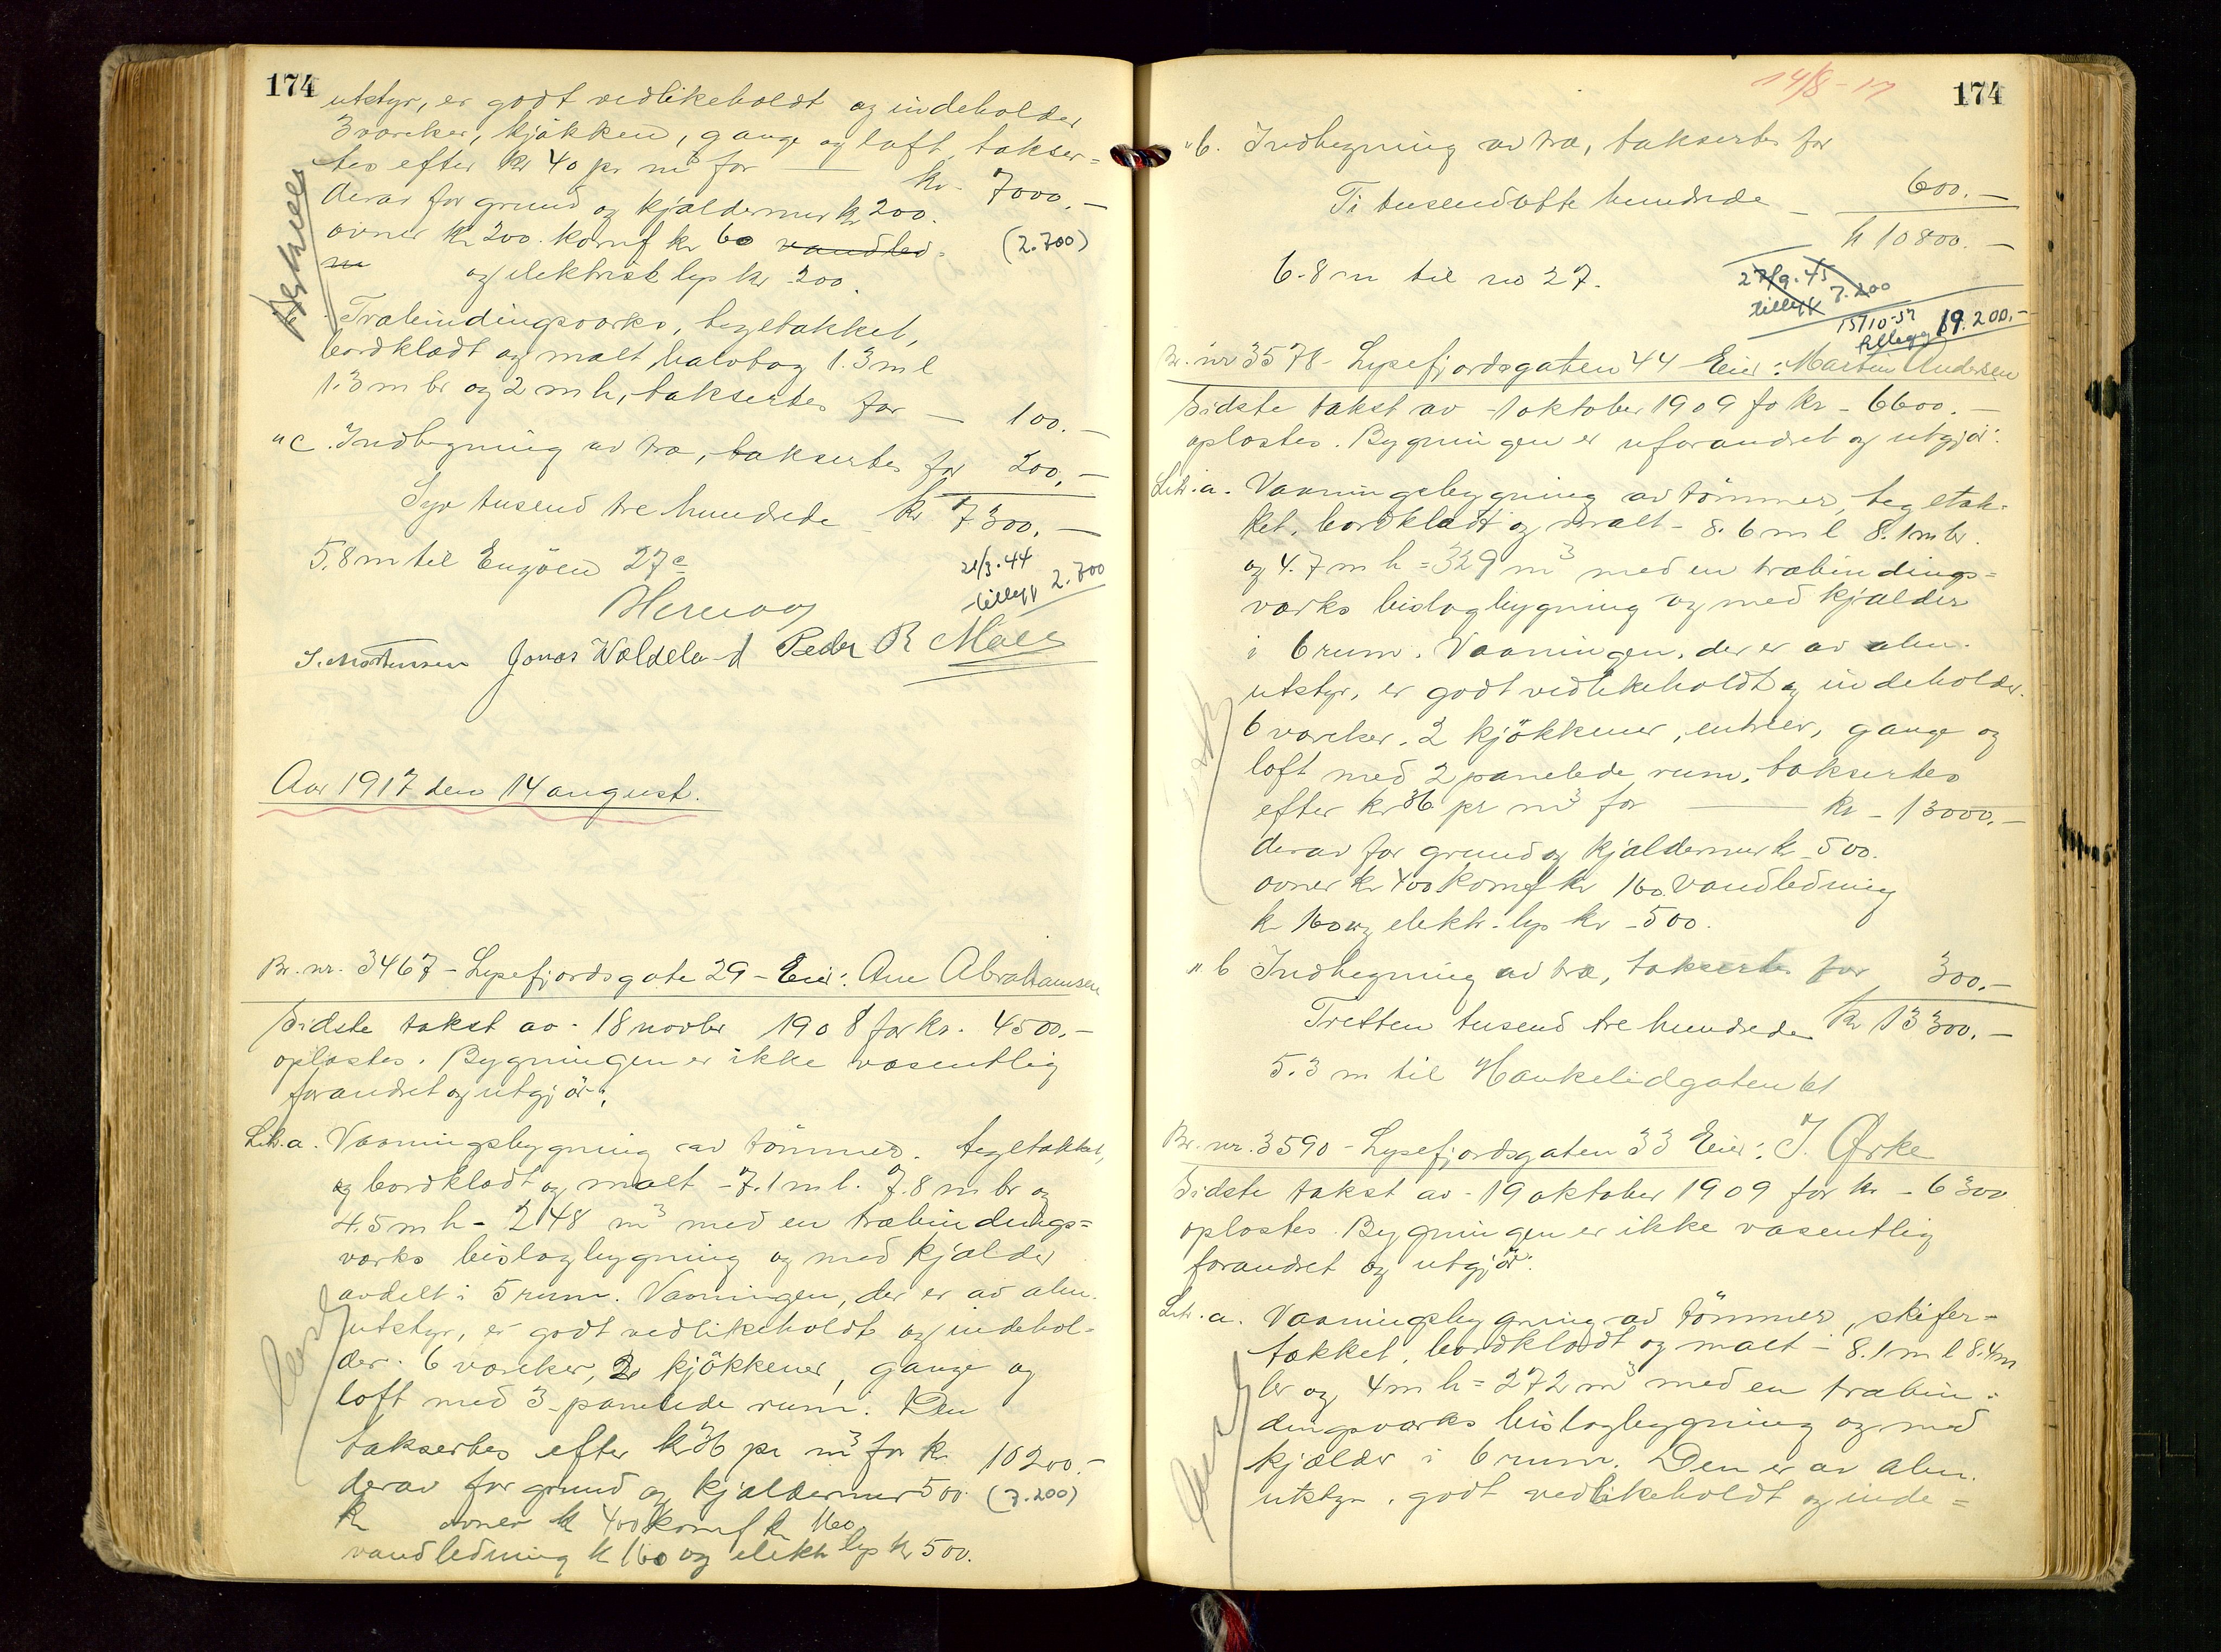 174
utstyr, er godt vedlikeholdt og indeholder
3 værelser, kjøkken, gange og loft, takser=
tes efter kr 40 pr m³ for — kr. 7000.—
derav for grund og kjældermur kr 200.
ovner kr 200. komf kr 60 vandled= (2.700)
og elektrisk lys kr 200.
Træbindingsværks, tegltækket,
bordklædt og malt halvtag 1.3 m l
1.3 m br og 2 m h, taksertes for — 100.—
" c. Indhegning av træ, taksertes for 200.—
Syv tusend tre hundrede kr 7300.—
5.8 m til Engøen 27c
21/3.44
tillegg 2.700
S. Mortensen Jonas Woldeland Peder R Mæle
Aar 1917 den 14 august.
Br. nr. 3467 – Lysefjordsgate 29 – Eier: Ane Abrahamsen
Sidste takst av 18 novbr 1908 for kr. 4500.—
oplæstes. Bygningen er ikke væsentlig
forandret og utgjør:
Litr. a. Vaaningsbygning av tømmer. tegltækket,
og bordklædt og malt – 7.1 m l. 7.8 m br og
4.5 m h – 248 m³ med en træbindings=
værks bislagbygning og med kjælder
avdelt i 5 rum. Vaaningen, der er av alm.
utstyr, er godt vedlikeholdt og indehol=
der 6 værelser, 2 kjøkkener, gange og
loft med 3 panelede rum. Den
taksertes efter kr 36 pr m³ for kr 10200.—
derav for grund og kjældermur 500. (7.200)
kr ovner kr 400 komf kr 160
vandledning kr 160 og elektr lys kr 500.
14/8-17
174
" b. Indhegning av træ, taksertes for
600.—
Ti tusend otte hundrede – kr 10800.—
6.8 m til no 27.
27/9.45
tillegg 7.200
15/10-52
tillegg 19.200.-
Br. nr 3578 – Lysefjordsgaten 44 Eier: Martin Andersen
Sidste takst av 1 oktober 1909 fo kr – 6600.—
oplæstes. Bygningen er uforandret og utgjør:
Litr. a. Vaaningsbygning av tømmer, tegltæk=
ket, bordklædt og malt – 8.6 m l 8.1 m br.
og 4.7 m h = 329 m³ med en træbindings=
værks bislagbygning og med kjælder
i 6 rum. Vaaningen, der er av alm.
utstyr, er godt vedlikeholdt og indeholder
6 værelser, 2 kjøkkener, entreer, gange og
loft med 2 panelede rum, taksertes
efter kr 36 pr m³ for — kr – 13000.—
derav for grund og kjældermur kr 500.
ovner kr 400 komf kr 160. vandledning
kr 160 og elektr. lys kr – 500.
" b Indhegning av træ, taksertes for 300.—
Tretten tusend tre hundrede kr 13300.—
5.3 m til Haukelidgaten 61
Br. nr. 3590 – Lysefjordsgaten 33 Eier: J. Ørke
Sidste takst av – 19 oktober 1909 for kr – 6300
oplæstes. Bygningen er ikke væsentlig
forandret og utgjør:
Litr. a. Vaaningsbygning av tømmer, skifer=
tækket, bordklædt og malt – 8.1 m l 8.4 m
br og 4 m h = 272 m³ med en træbin=
dingsværks bislagbygning og med
kjælder i 6 rum. Den er av alm.
utstyr, godt vedlikeholdt og inde=